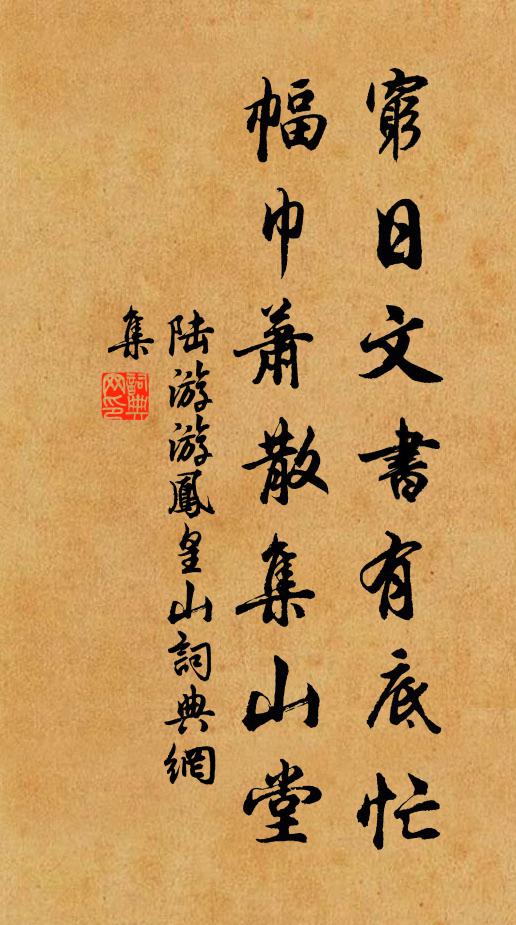 窮日文書有底忙
幅巾蕭散集山堂
陸游游鳳皇山詞典網
集
詞典网印